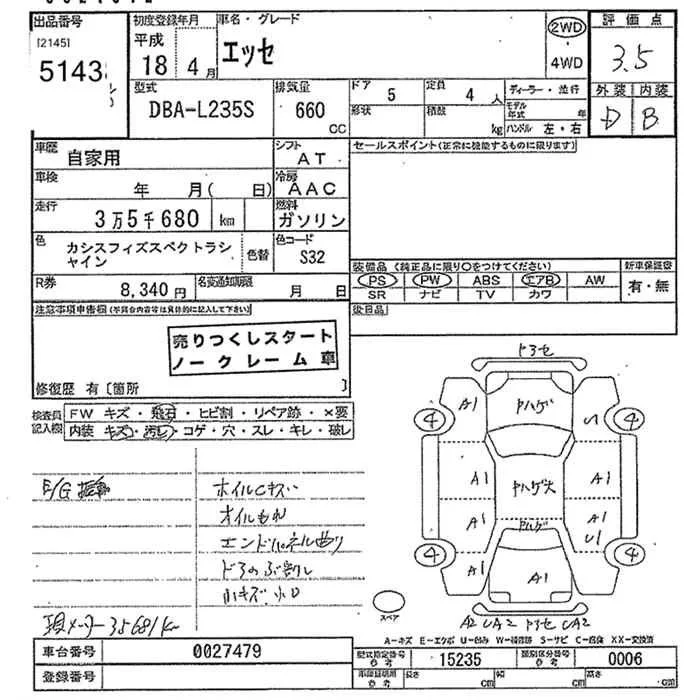 出品番号 初度登録年月 車名・グレード 評価点
[2145] 平成 エッセ 2WD 3.5
5143 18年 4月 4WD
型式 排気量 ドア 5 定員 4人 ディーラー・並行 外装 内装
DBA-L235S 660 CC 形状 積載 kg モデル年式 年 D B
ハンドル 左・右
車歴 自家用 シフト AT セールスポイント(正常に機能するものに限ります)
車検 年 月( 日) 冷房 AAC
走行 3万5千680 km 燃料 ガソリン
色 カシスフィズスペクトラシャイン 色替 色コード S32
装備品(純正品に限り○をつけてください) 新車保証書
R券 8,340円 名変通知期限 月 日 PS PW ABS エアB AW 有・無
SR ナビ TV カワ
注意事項申告欄(不具合内容等は具体的に記入して下さい) 後日品
売りつくしスタート
ノークレーム車
修復歴 有〔箇所 〕
検査員記入欄 FW キズ・飛石・ヒビ割・リペア跡・×要
内装 キズ・汚レ・コゲ・穴・スレ・キレ・破レ
E/G ホイルCキズ
オイルもれ
エンドパネル曲り
ドアのぶ割レ
小キズ 凹
現メーター35681km
ドアセ
4 A1 ヤハゲ U 4
A1 ヤハゲ大 A1
A1 ヤハゲ A1 U1
4 A1 A1 4
スペア A2 UA2 ドアセ UA2
A-キズ E-エクボ U-凹み W-補修跡 S-サビ C-腐蝕 XX-交換済
車台番号 0027479 型式指定番号 参考 15235 類別区分番号 参考 0006
登録番号 車庫証明用 参考 長さ cm 幅 cm 高さ cm